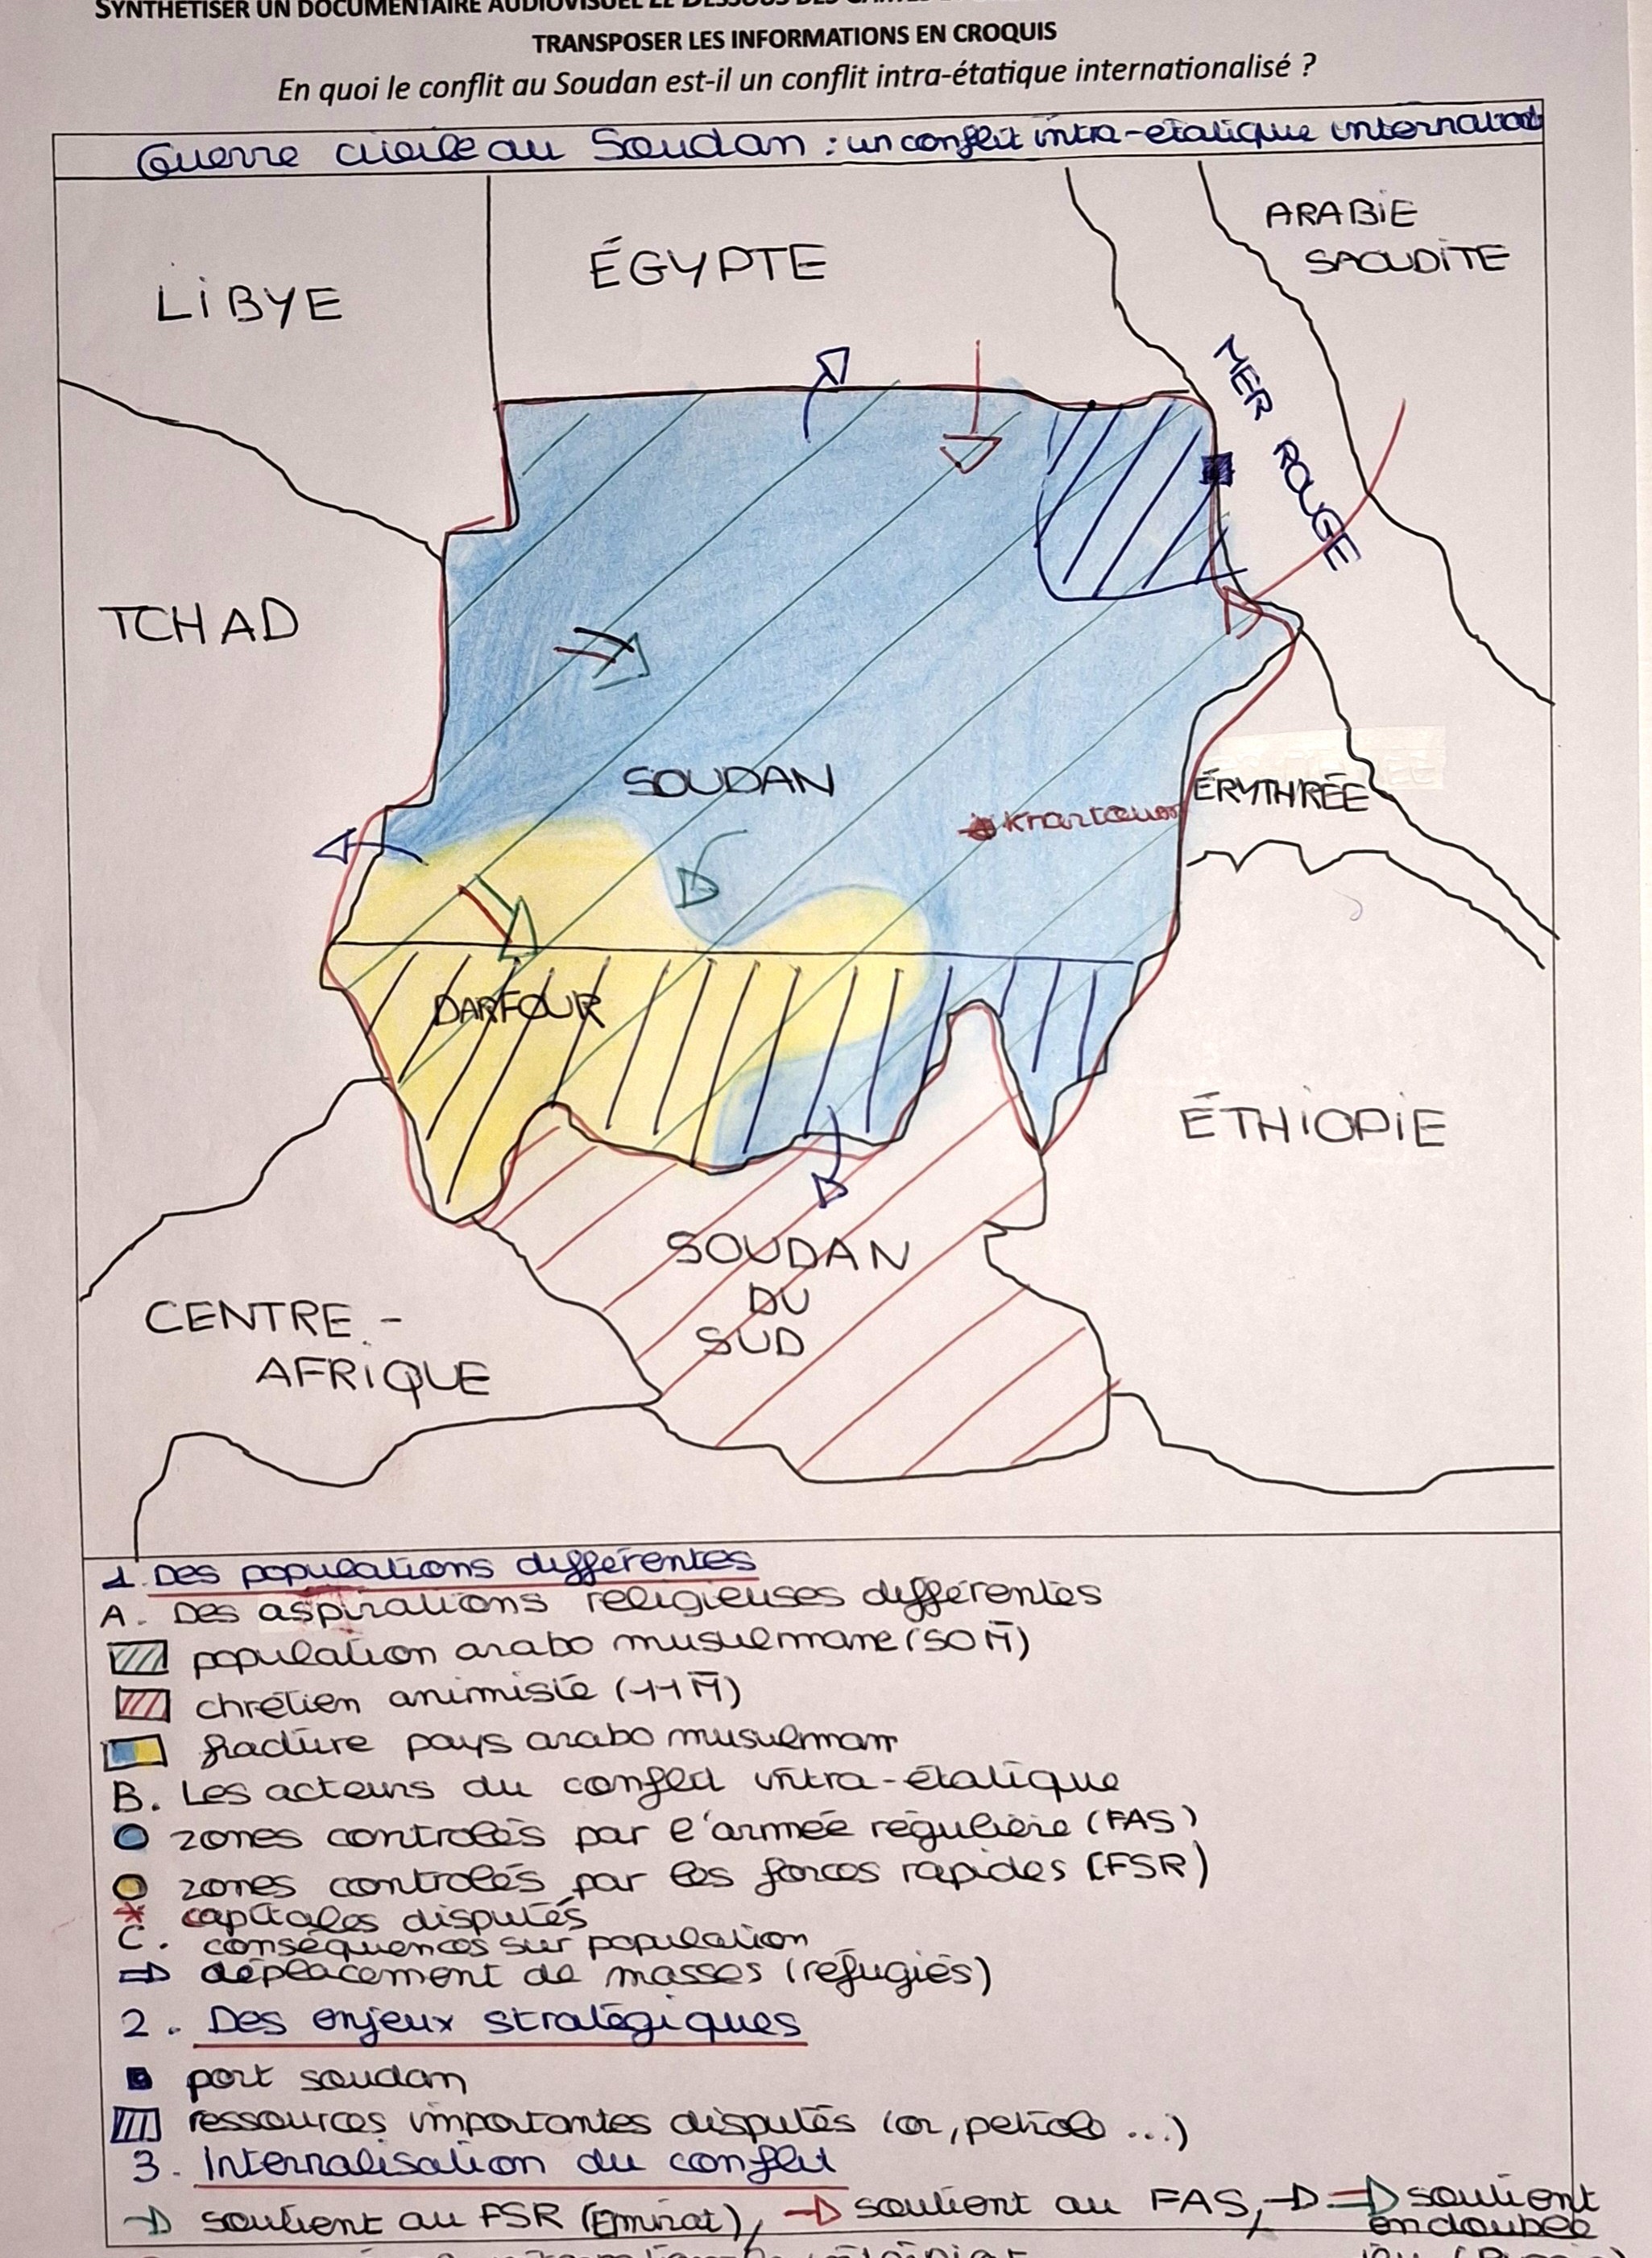 SYNTHÉTISER UN DOCUMENTAIRE AUDIOVISUEL LE DESSOUS DES CARTES
TRANSPOSER LES INFORMATIONS EN CROQUIS
En quoi le conflit au Soudan est-il un conflit intra-étatique internationalisé ?
Guerre civile au Soudan : un conflit intra-étatique
ARABIE
SAOUDITE
ÉGYPTE
LIBYE
MER ROUGE
TCHAD
SOUDAN
ÉRYTHRÉE
Khartoum
DARFOUR
ÉTHIOPIE
SOUDAN
DU
SUD
CENTRE -
AFRIQUE
1. Des populations différentes
A. Des aspirations religieuses différentes
population arabo musulmane (50 M)
chrétien animiste (11 M)
fracture pays arabo musulman
B. Les acteurs du conflit intra-étatique
zones controlés par l'armée régulière (FAS)
zones controlés par les forces rapides (FSR)
capitales disputés
C. conséquences sur population
déplacement de masses (réfugiés)
2. Des enjeux stratégiques
port soudan
ressources importantes disputés (or, petrole ...)
3. Internalisation du conflit
soutient au FSR (Emirat), soutient au FAS, soutient
en double